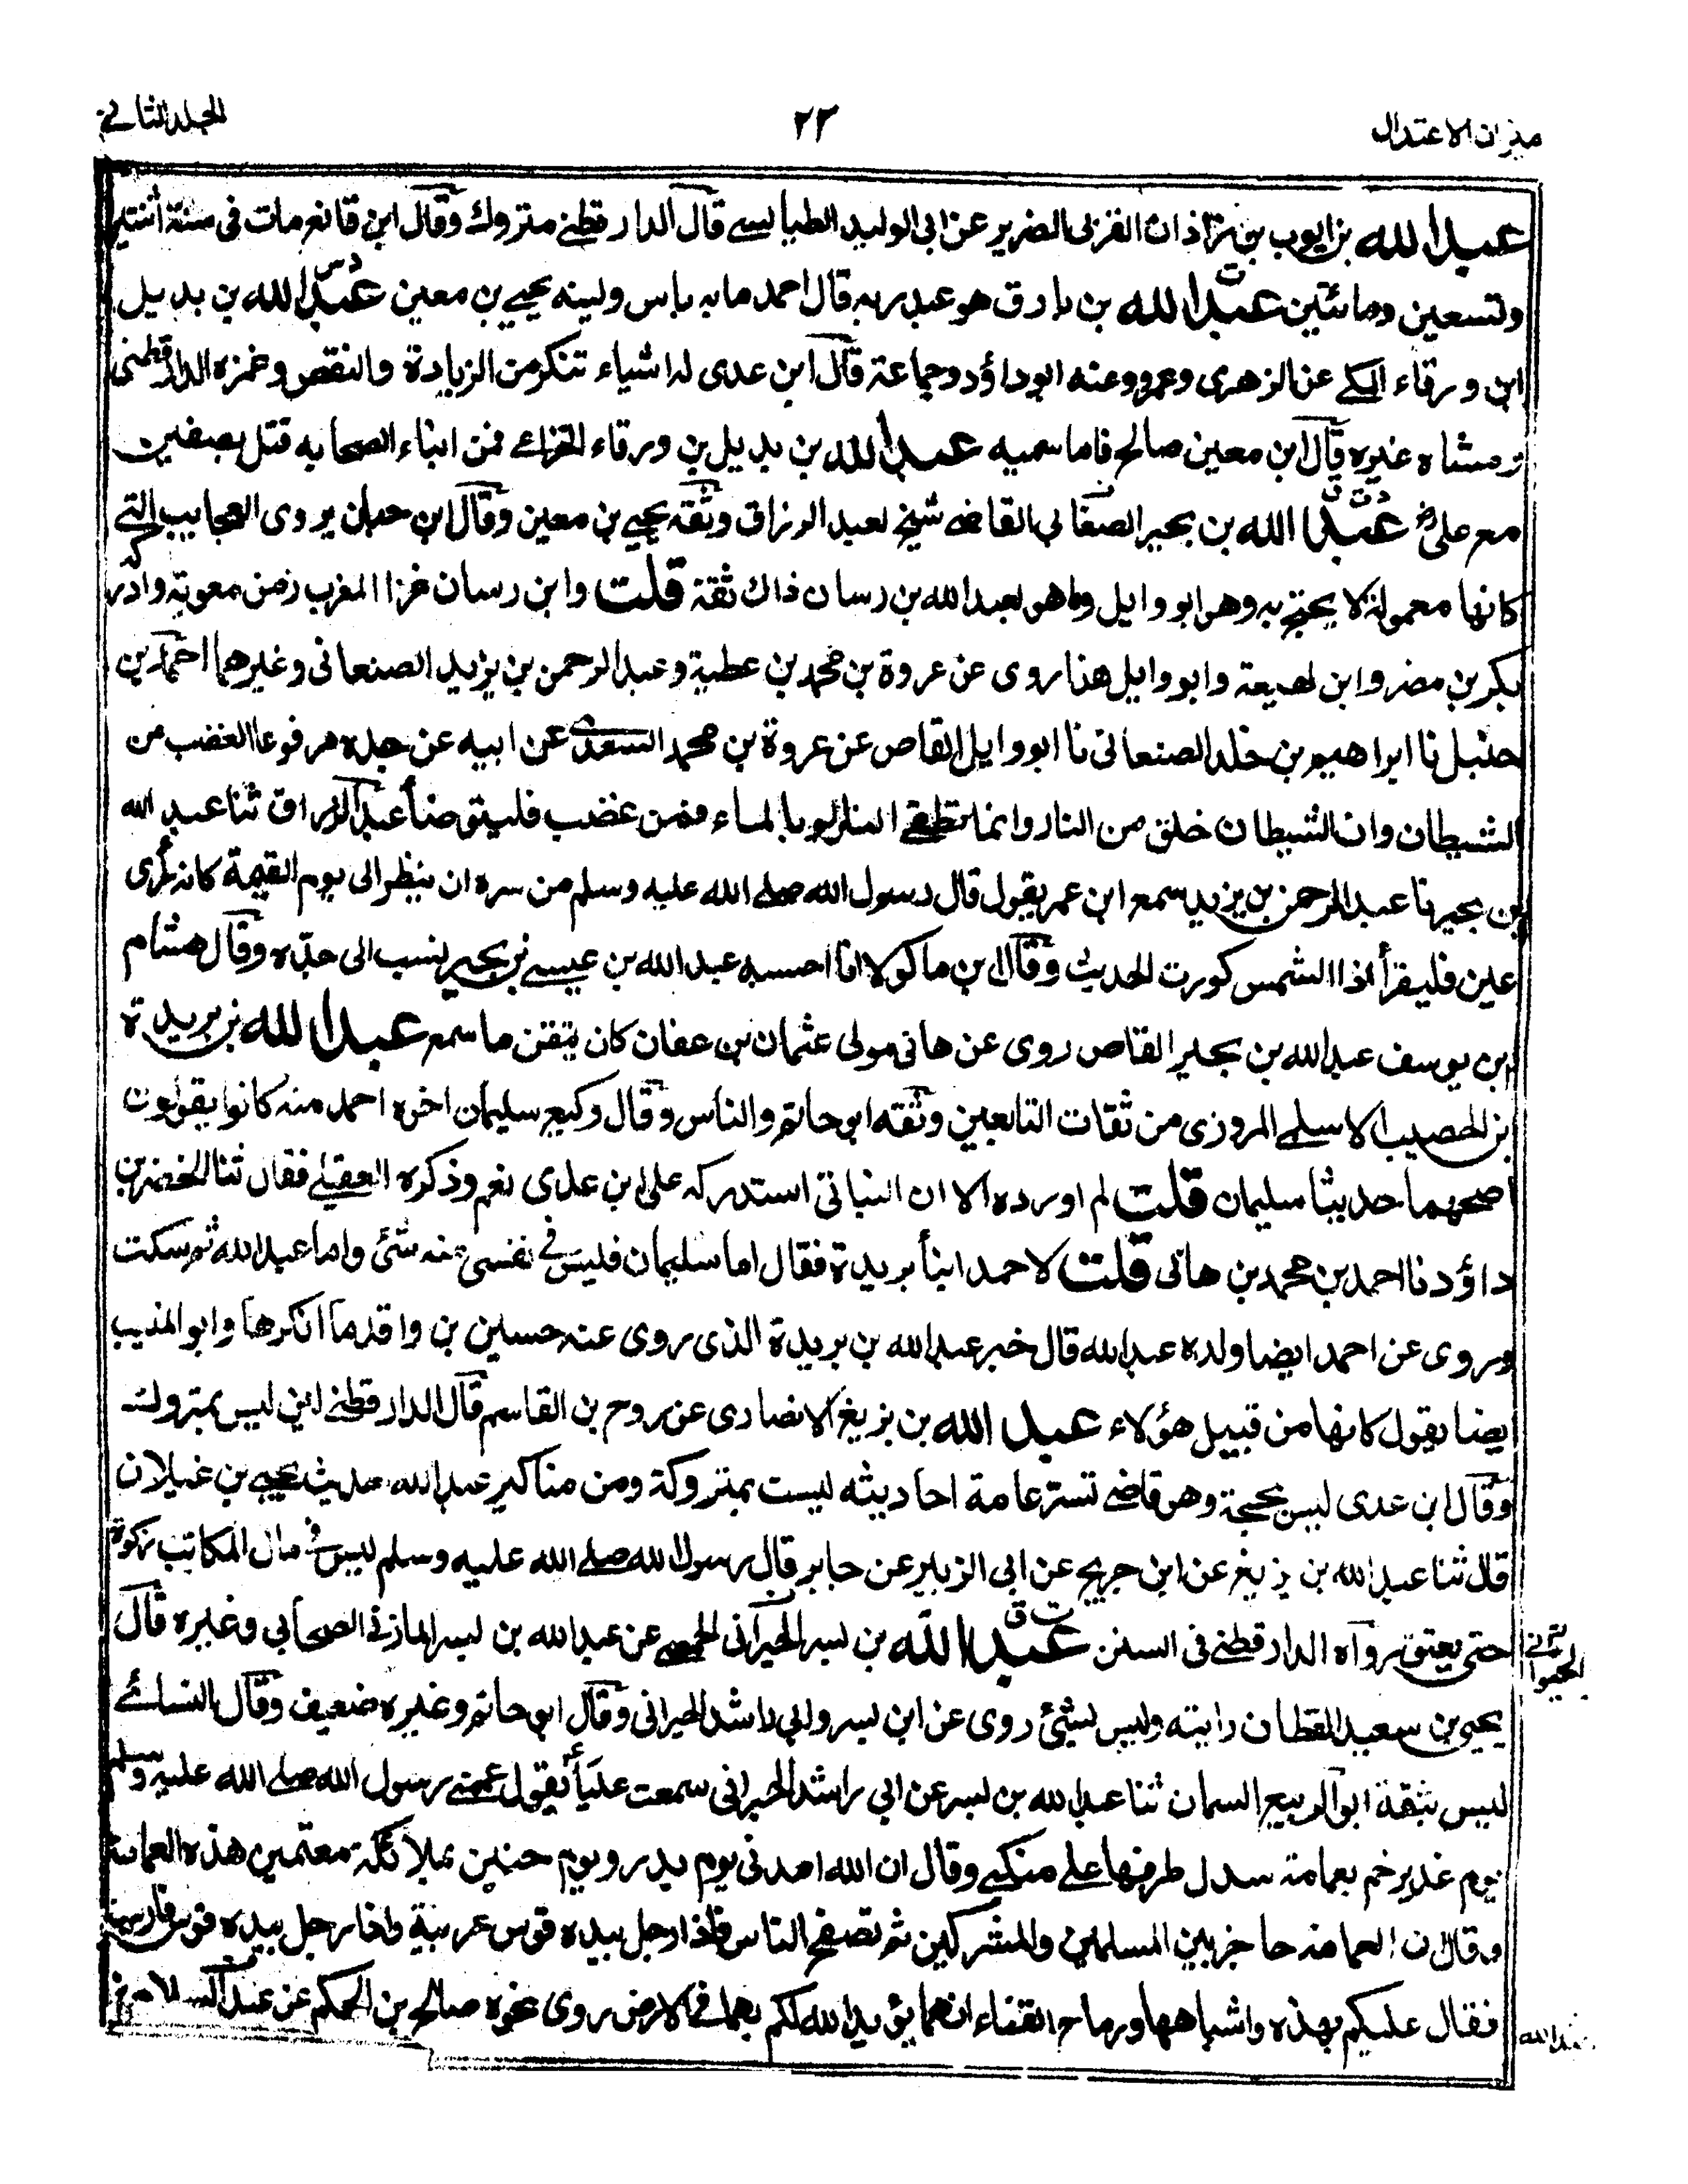 ميزان الاعتدال
٢٣
المجلد الثاني
عبد الله بن ايوب بن زاذان القربي الضرير عن ابي الوليد الطيالسي قال الدارقطني متروك وقال ابن قانع مات في سنة اثنتين
وتسعين ومائتين عبد الله بن بارق هو عبد ربه قال احمد ما به باس ولينه يحيى بن معين عبد الله بن بديل
ابن ورقاء المكي عن الزهري وعمرو وعنه ابو داؤد وجماعة قال ابن عدى له اشياء تنكر من الزيادة والنقص وغمزه الدارقطني
ومشاه غيره قال ابن معين صالح فاما سميه عبد الله بن بديل بن ورقاء الخزاعي فمن ابناء الصحابه قتل بصفين
مع علي عبد الله بن بحير الصنعاني القاص شيخ لعبد الرزاق وثقه يحيى بن معين وقال ابن حبان يروى العجايب التي
كانها معمولة لا يحتج به وهو ابو وايل وما هو بعبد الله بن رسان ذاك ثقة قلت وابن رسان غزا المغرب زمن معوية وادركه
بكر بن مضر وابن لهيعة وابو وايل هذا روى عن عروة بن محمد بن عطية وعبد الرحمن بن يزيد الصنعاني وغيرهما احمد بن
حنبل نا ابراهيم بن خلد الصنعاني نا ابو وايل القاص عن عروة بن محمد السعدى عن ابيه عن جده مرفوعا الغضب من
الشيطان وان الشيطان خلق من النار وانما تطفي النار بالماء فمن غضب فليتوضأ عبد الرزاق ثنا عبد الله
بن بحير نا عبد الرحمن بن يزيد سمع ابن عمر يقول قال رسول الله صلى الله عليه وسلم من سره ان ينظر الى يوم القيمة كانه رأى
عين فليقرأ اذا الشمس كورت الحديث وقال ابن ماكولا انا احسبه عبد الله بن عيسى بن بحير نسب الى جده وقال هشام
ابن يوسف عبد الله بن بحير القاص روى عن هاني مولى عثمان بن عفان كان يتقن ما سمع عبد الله بن بريدة
بن الحصيب الاسلمي المروزى من ثقات التابعين وثقه ابو حاتم والناس وقال وكيع سليمان اخوه احمد منه كانوا يقولون
اصحهما حديثا سليمان قلت لم اورده الا ان النباتي استدركه على ابن عدى نعم وذكره العقيلي فقال ثنا الخضر بن
داؤد نا احمد بن محمد بن هاني قلت لاحمد ابنا بريدة فقال اما سليمان فليس في نفسي منه شئ واما عبد الله ثم سكت
وروى عن احمد ايضا ولده عبد الله قال خبر عبد الله بن بريدة الذى روى عنه حسين بن واقد ما انكرها وابو المنيب
ايضا يقول كانها من قبيل هؤلاء عبد الله بن بزيغ الانصارى عن روح بن القاسم قال الدارقطني لين ليس بمتروك
وقال ابن عدى ليس بحجة وهو قاضي تستر عامة احاديثه ليست بمتروكة ومن مناكير عبد الله حديث يحيى بن غيلان
قال ثنا عبد الله بن بزيغ عن ابن جريج عن ابى الزبير عن جابر قال رسول الله صلى الله عليه وسلم ليس في مال المكاتب زكوة
حتى يعتق رواه الدارقطني في السنن عبد الله بن بسر الحبراني الحمصي عن عبد الله بن بسر المازني الصحابي وغيره قال
يحيى بن سعيد القطان رايته وليس بشئ روى عن ابن بسر وابي راشد الحبراني وقال ابو حاتم وغيره ضعيف وقال النسائي
ليس بثقة ابو الربيع السمان ثنا عبد الله بن بسر عن ابي راشد الحبراني سمعت عليا يقول عممني رسول الله صلى الله عليه وسلم
يوم غدير خم بعمامة سدل طرفها على منكبي وقال ان الله امدني يوم بدر ويوم حنين بملائكة معتمين هذه العمامة
وقال ان العمامة حاجز بين المسلمين والمشركين ثم تصفح الناس فاذا رجل بيده قوس عربية واذا رجل بيده قوس فارسية
فقال عليكم بهذه واشباهها ورماح القناء انهما يؤيد الله لكم بهما في الارض روى نحوه صالح بن الحكم عن